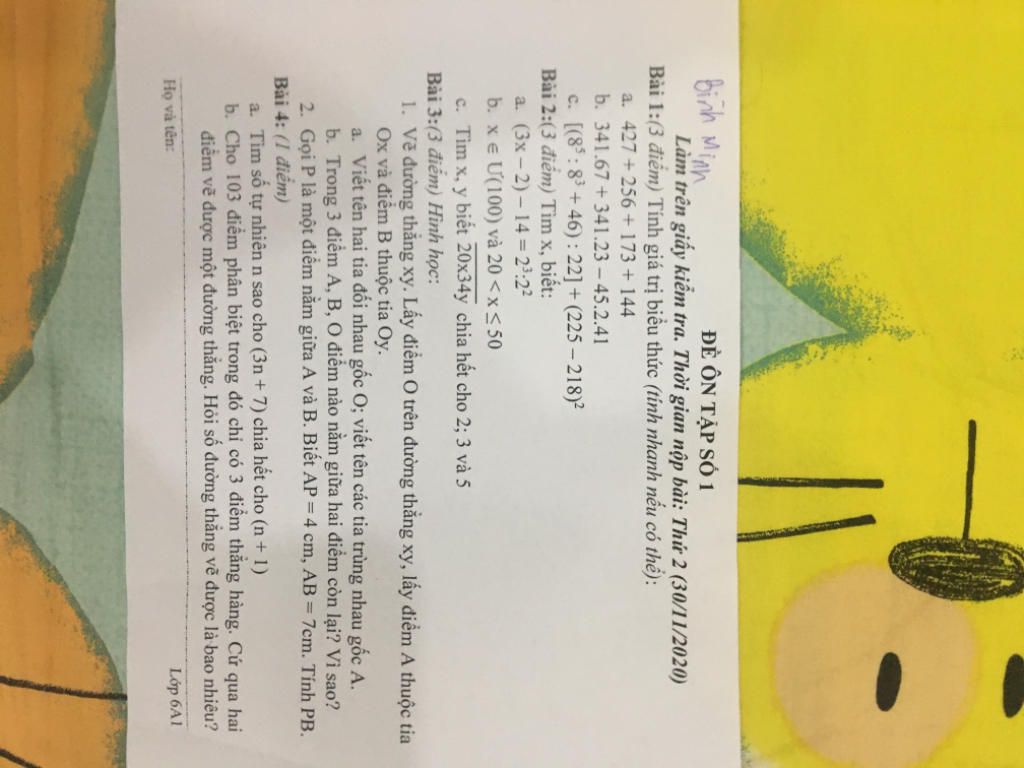 Bình Minh
ĐỀ ÔN TẬP SỐ 1
Làm trên giấy kiểm tra. Thời gian nộp bài: Thứ 2 (30/11/2020)
Bài 1:(3 điểm) Tính giá trị biểu thức (tính nhanh nếu có thể):
a. 427 + 256 + 173 + 144
b. 341.67 + 341.23 – 45.2.41
c. [(8⁵ : 8³ + 46) : 22] + (225 – 218)²
Bài 2:(3 điểm) Tìm x, biết:
a. (3x – 2) – 14 = 2³.2²
b. x ∈ Ư(100) và 20 < x ≤ 50
c. Tìm x, y biết 20x34y chia hết cho 2; 3 và 5
Bài 3:(3 điểm) Hình học:
1. Vẽ đường thẳng xy. Lấy điểm O trên đường thẳng xy, lấy điểm A thuộc tia
Ox và điểm B thuộc tia Oy.
a. Viết tên hai tia đối nhau gốc O; viết tên các tia trùng nhau gốc A.
b. Trong 3 điểm A, B, O điểm nào nằm giữa hai điểm còn lại? Vì sao?
2. Gọi P là một điểm nằm giữa A và B. Biết AP = 4 cm, AB = 7cm. Tính PB.
Bài 4: (1 điểm)
a. Tìm số tự nhiên n sao cho (3n + 7) chia hết cho (n + 1)
b. Cho 103 điểm phân biệt trong đó chỉ có 3 điểm thẳng hàng. Cứ qua hai
điểm vẽ được một đường thẳng. Hỏi số đường thẳng vẽ được là bao nhiêu?
Họ và tên: Lớp 6A1